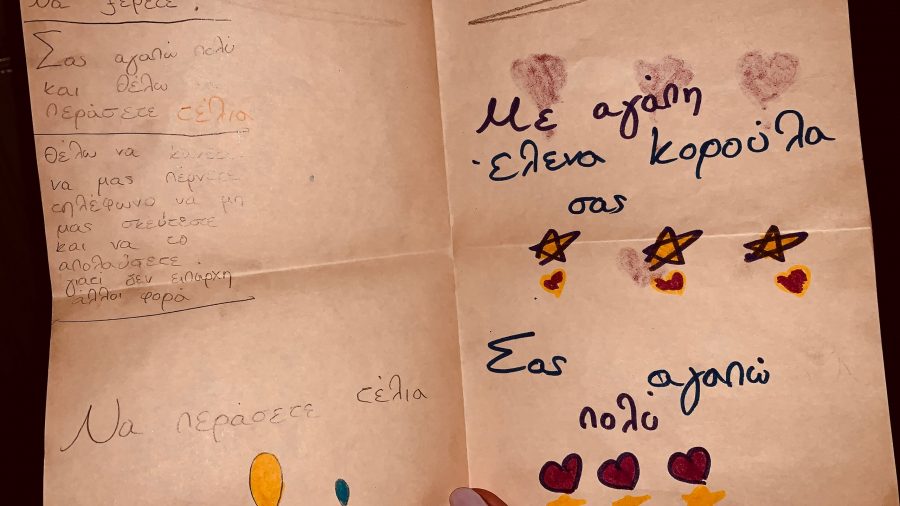 Να ξέρετε.
Σας αγαπώ πολύ
και θέλω
περάσετε τέλια
θέλω να κάνετε
να μας πέρνετε
τηλέφωνο να μη
μας σκεύτεστε
και να το
απολαύσετε.
γιατί δεν ειπάρχη
άλλοι φορά
Να περάσετε τέλια
Με αγάπη
ελενα κορούλα
σας
Σας αγαπώ
πολύ